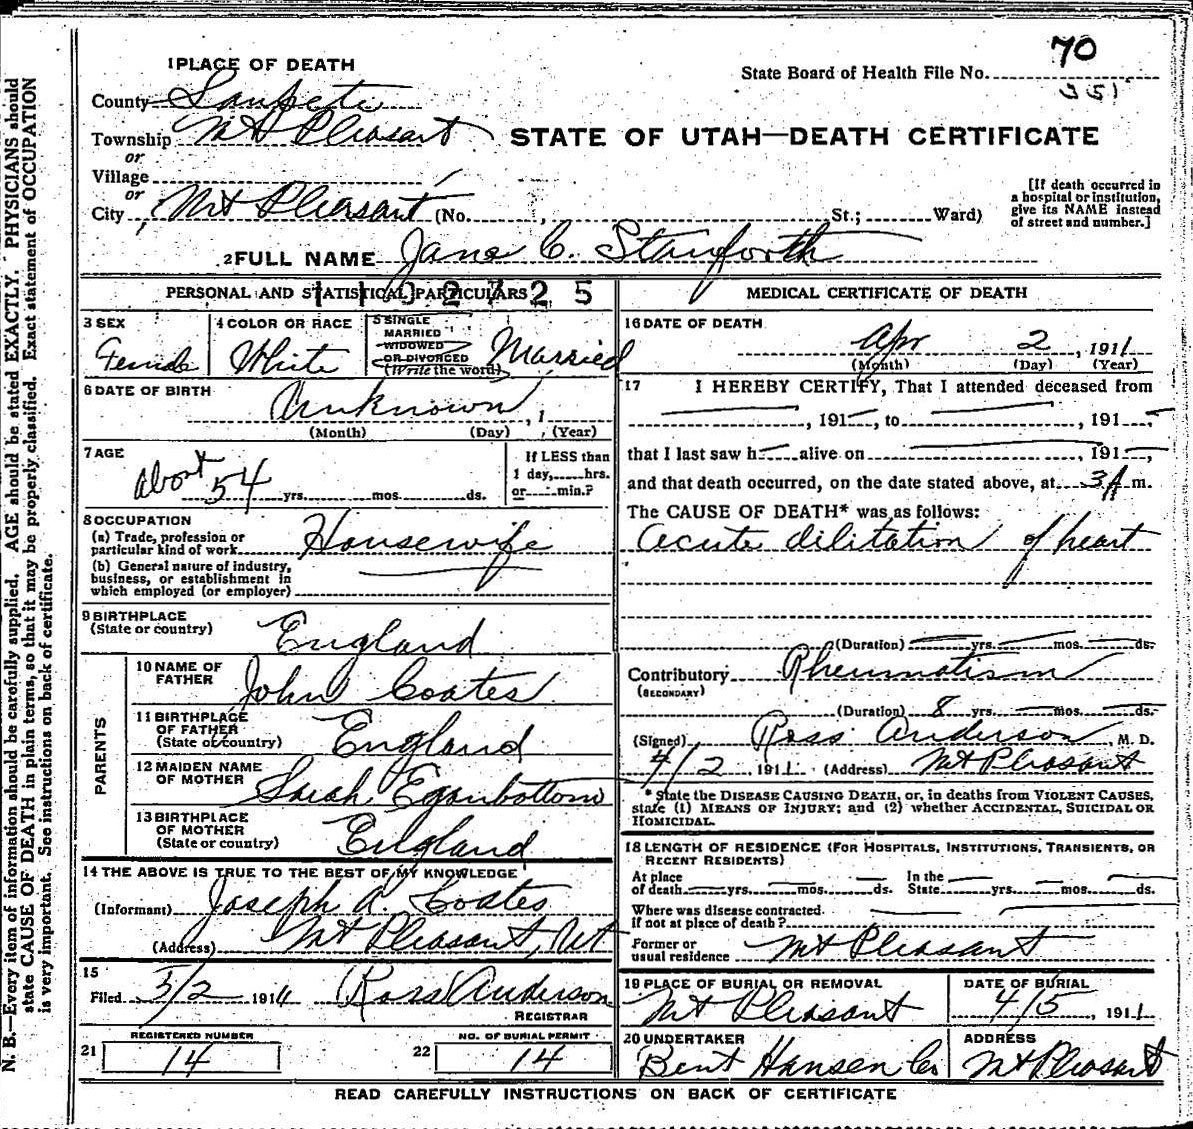 70
State Board of Health File No.
351
1 PLACE OF DEATH
County Sanpete
Township Mt Pleasant
STATE OF UTAH—DEATH CERTIFICATE
or
Village
or
City Mt Pleasant (No. , St.; Ward)
[If death occurred in a hospital or institution, give its NAME instead of street and number.]
2 FULL NAME Jane C. Staniforth
1102725
PERSONAL AND STATISTICAL PARTICULARS
3 SEX
Female
4 COLOR OR RACE
White
5 SINGLE
MARRIED
WIDOWED
OR DIVORCED
(Write the word)
Married
6 DATE OF BIRTH
Unknown , 1
(Month) (Day) (Year)
7 AGE
About 54 yrs. mos. ds.
If LESS than
1 day, hrs.
or min.?
8 OCCUPATION
(a) Trade, profession or
particular kind of work Housewife
(b) General nature of industry,
business, or establishment in
which employed (or employer)
9 BIRTHPLACE
(State or country) England
PARENTS
10 NAME OF
FATHER John Coates
11 BIRTHPLACE
OF FATHER
(State or country) England
12 MAIDEN NAME
OF MOTHER Sarah Eganbottom
13 BIRTHPLACE
OF MOTHER
(State or country) England
14 THE ABOVE IS TRUE TO THE BEST OF MY KNOWLEDGE
(Informant) Joseph A Coates
(Address) Mt Pleasant, Ut
15
Filed 5/2 1911 Ross Anderson
REGISTRAR
REGISTERED NUMBER
21 14
NO. OF BURIAL PERMIT
22 14
MEDICAL CERTIFICATE OF DEATH
16 DATE OF DEATH
Apr 2 , 1911
(Month) (Day) (Year)
17 I HEREBY CERTIFY, That I attended deceased from
, 191 , to , 191 ,
that I last saw h alive on , 191 ,
and that death occurred, on the date stated above, at 3 A m.
The CAUSE OF DEATH* was as follows:
Acute dilitation of heart
(Duration) yrs. mos. ds.
Contributory Rheumatism
(SECONDARY)
(Duration) 8 yrs. mos. ds.
(Signed) Ross Anderson, M. D.
4/2, 1911 (Address) Mt Pleasant
* State the DISEASE CAUSING DEATH, or, in deaths from VIOLENT CAUSES,
state (1) MEANS OF INJURY; and (2) whether ACCIDENTAL, SUICIDAL OR
HOMICIDAL.
18 LENGTH OF RESIDENCE (FOR HOSPITALS, INSTITUTIONS, TRANSIENTS, OR
RECENT RESIDENTS)
At place In the
of death yrs. mos. ds. State yrs. mos. ds.
Where was disease contracted.
If not at place of death?
Former or
usual residence Mt Pleasant
19 PLACE OF BURIAL OR REMOVAL
Mt Pleasant
DATE OF BURIAL
4/5 , 1911
20 UNDERTAKER
Bent Hansen Co
ADDRESS
Mt Pleasant
READ CAREFULLY INSTRUCTIONS ON BACK OF CERTIFICATE
N. B.—Every item of information should be carefully supplied. AGE should be stated EXACTLY. PHYSICIANS should
state CAUSE OF DEATH in plain terms, so that it may be properly classified. Exact statement of OCCUPATION
is very important. See instructions on back of certificate.